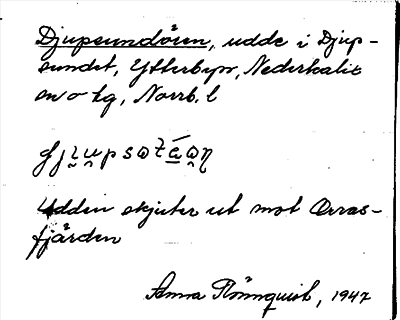 Djupsundören, udde i Djup-
sundet, Ytterbyn, Nederkalix
sn o tg, Norrb. l
Udden skjuter ut mot Orras-
fjärden
Anna Rönnquist, 1947